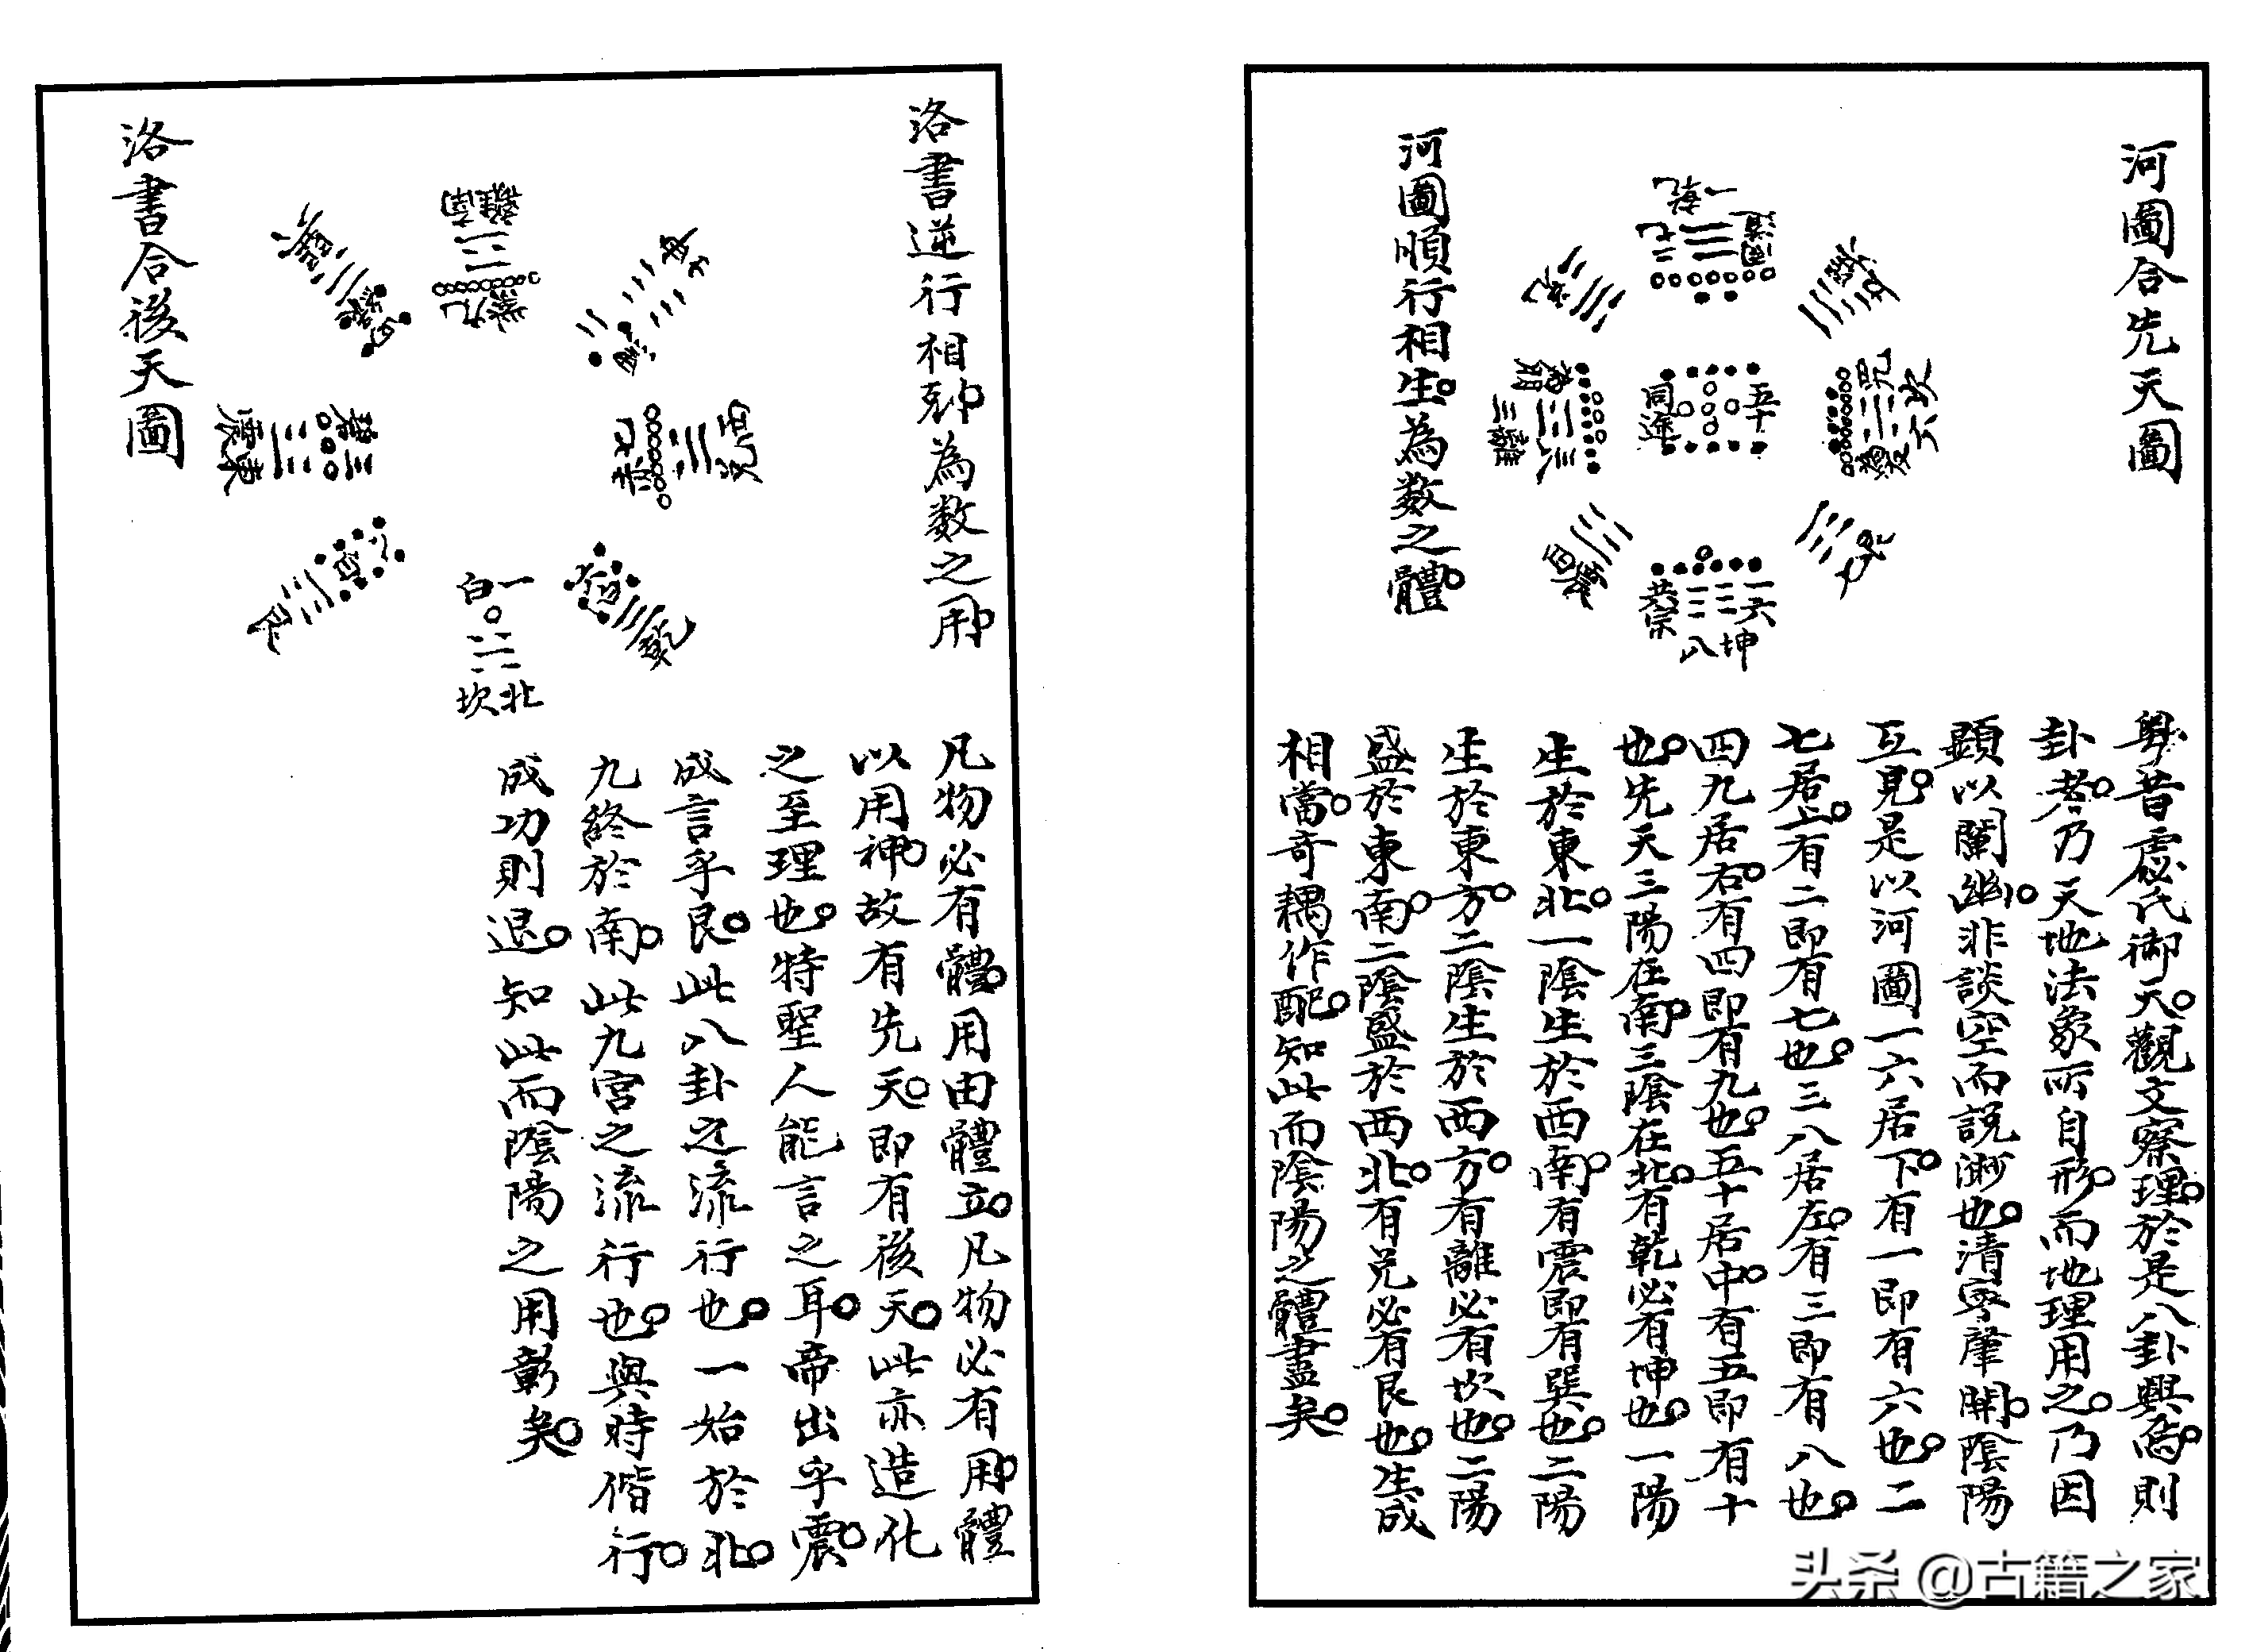 河圖合先天圖
河圖順行相生為數之體
五十
同途
一六
共宗
坤
八
粵昔虙氏御天觀文察理於是八卦興焉則
卦者乃天地法象所自形而地理用之乃因
顯以闡幽非談空而說渺也清寧肇開陰陽
互見是以河圖一六居下有一即有六也二
七居上有二即有七也三八居左有三即有八也
四九居右有四即有九也五十居中有五即有十
也先天三陽在南三陰在北有乾必有坤也一陽
生於東北一陰生於西南有震即有巽也二陽
生於東方二陰生於西方有離必有坎也二陽
盛於東南二陰盛於西北有兌必有艮也生成
相當奇耦作配知此而陰陽之體盡矣
洛書逆行相剋為數之用
離南
九紫
西兌
震東
三碧
乾
艮
一白
北坎
洛書合後天圖
凡物必有體用由體立凡物必有用體
以用神故有先天即有後天此亦造化
之至理也特聖人能言之耳帝出乎震
成言乎艮此八卦之流行也一始於北
九終於南此九宮之流行也與時偕行
成功則退知此而陰陽之用彰矣
头杀 @古籍之家